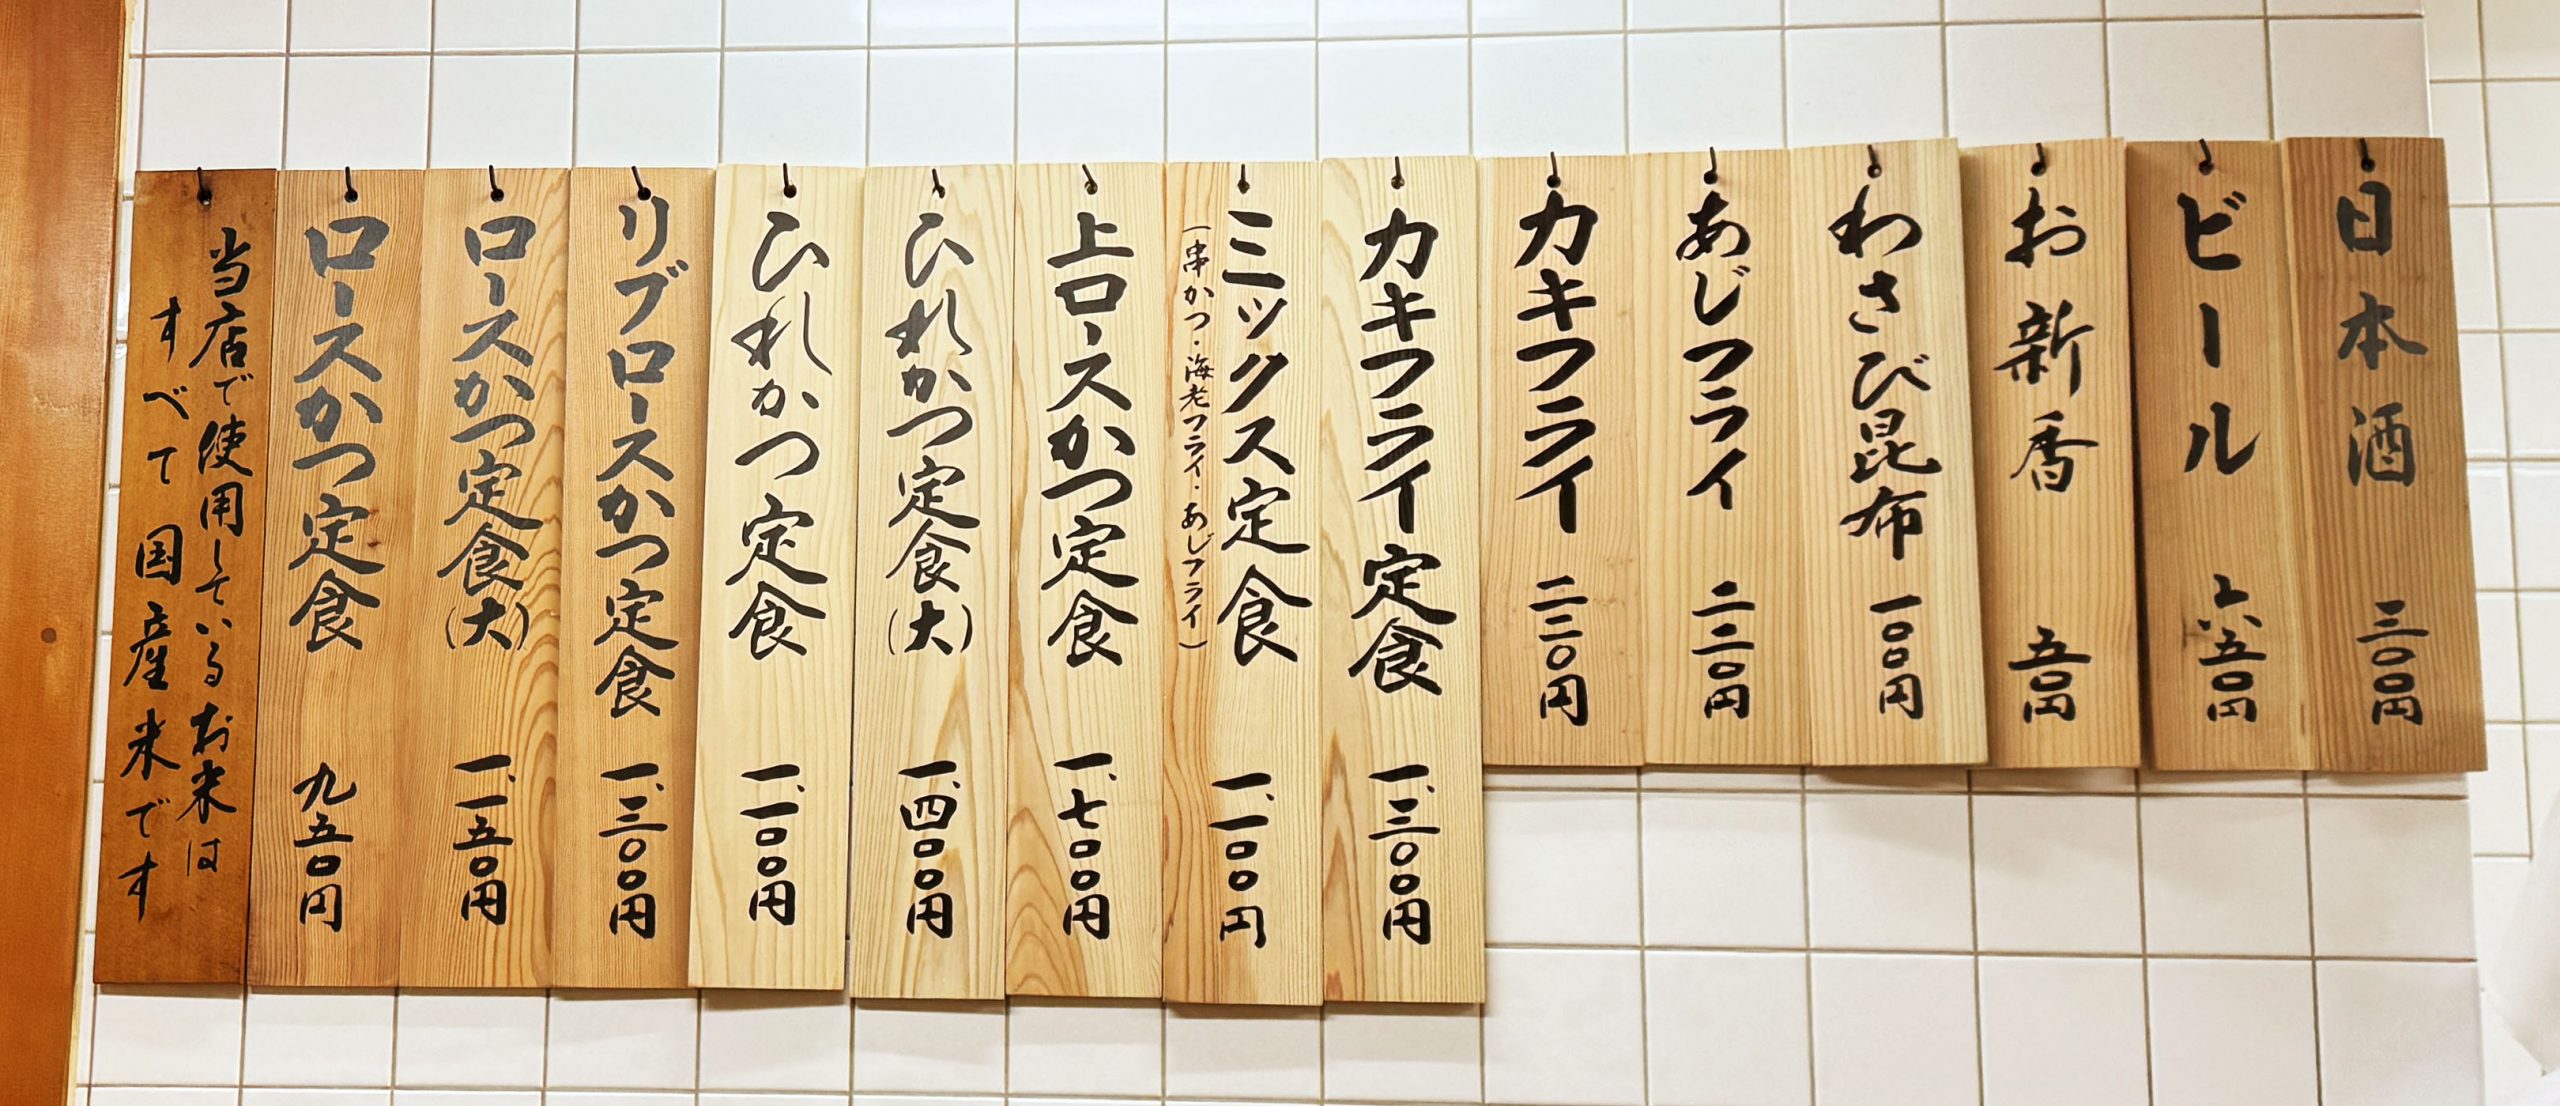 日本酒 三〇〇円
ビール 六五〇円
お新香 五〇円
わさび昆布 一〇〇円
あじフライ 二二〇円
カキフライ 二二〇円
カキフライ定食 一、三〇〇円
ミックス定食 一、一〇〇円
(串かつ・海老フライ・あじフライ)
上ロースかつ定食 一、七〇〇円
ひれかつ定食(大) 一、四〇〇円
ひれかつ定食 一、一〇〇円
リブロースかつ定食 一、三〇〇円
ロースかつ定食(大) 一、一五〇円
ロースかつ定食 九五〇円
当店で使用しているお米は
すべて国産米です